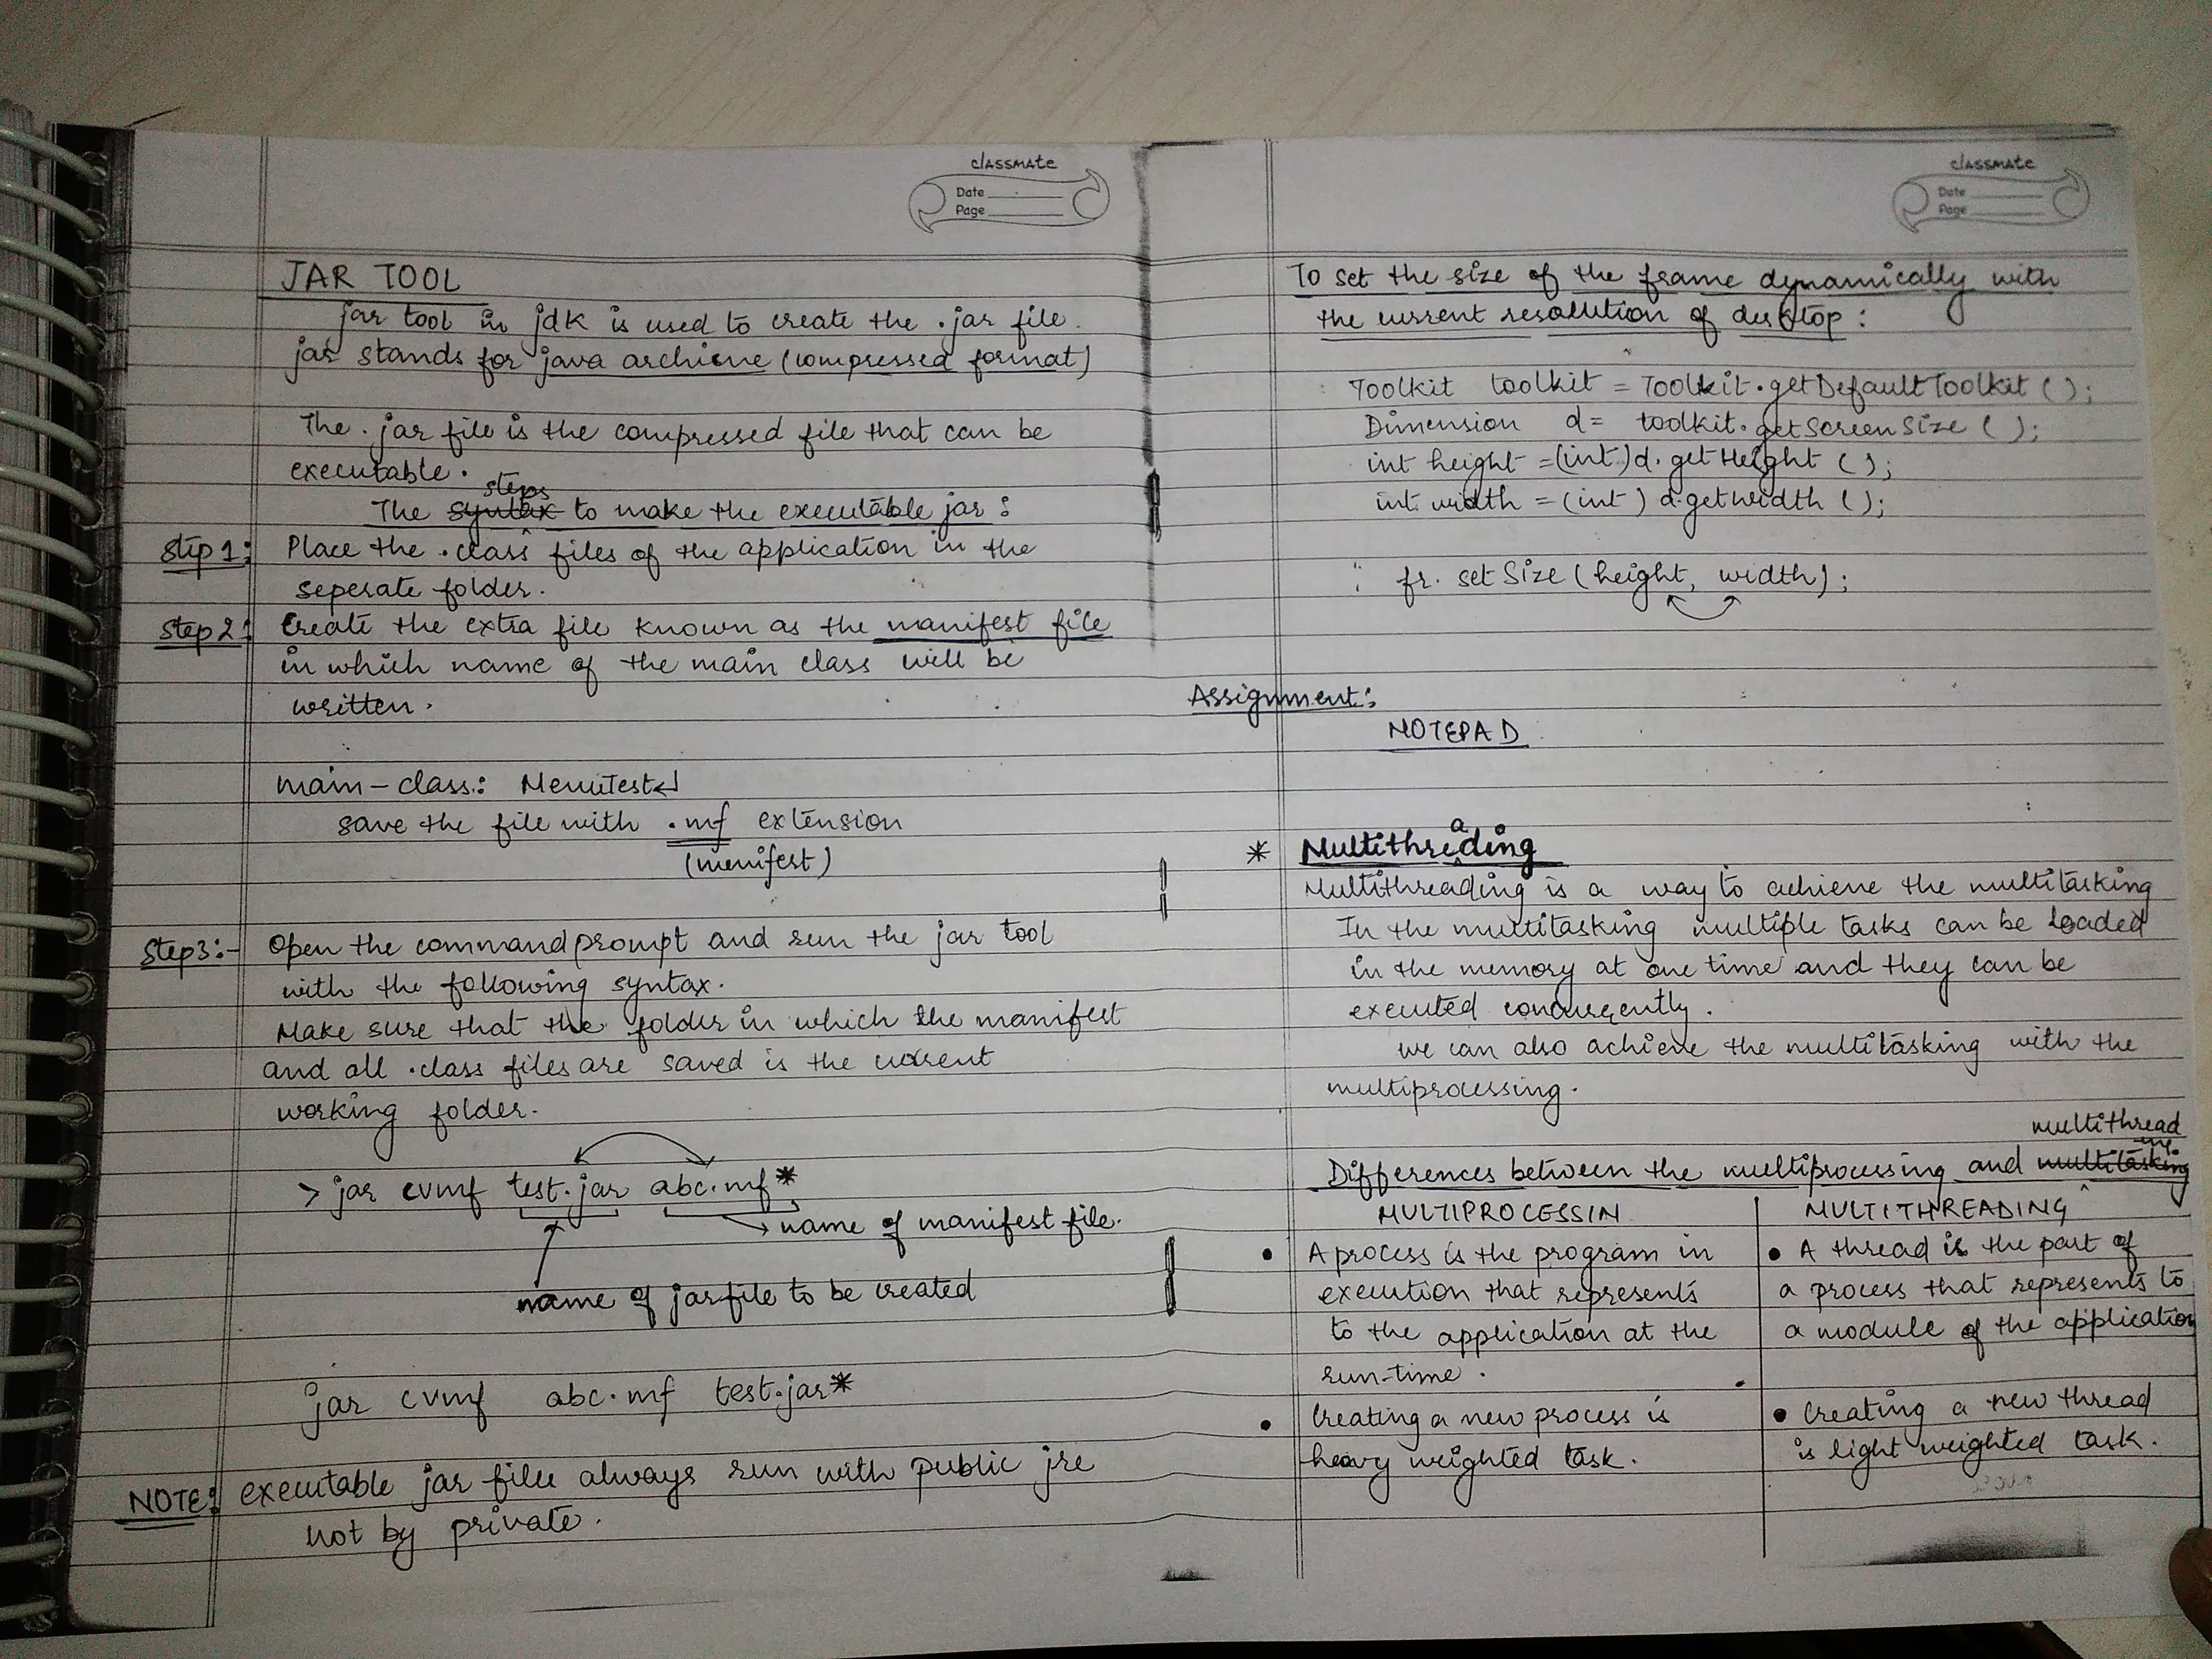 classmate
Date
Page
JAR TOOL
jar tool in jdk is used to create the .jar file.
jar stands for java archieve (compressed format)
The .jar file is the compressed file that can be
executable.
steps
The syntax to make the executable jar :
Step 1: Place the .class files of the application in the
seperate folder.
Step 2: Create the extra file known as the manifest file
in which name of the main class will be
written.
main-class: MenuTest↵
save the file with .mf extension
(menifest)
Step3:- Open the command prompt and run the jar tool
with the following syntax.
Make sure that the folder in which the manifest
and all .class files are saved is the current
working folder.
> jar cvmf test.jar abc.mf *
name of manifest file.
name of jar file to be created
jar cvmf abc.mf test.jar *
NOTE: executable jar files always run with public jre
not by private.
classmate
Date
Page
To set the size of the frame dynamically with
the current resollution of desktop :
Toolkit toolkit = Toolkit.getDefaultToolkit ( );
Dimension d= toolkit.getScreenSize ( );
int height =(int)d.getHeight ( );
int width = (int) d.getwidth ( );
fr. setSize (height, width);
Assignment:
NOTEPAD
* Multithreading
Multithreading is a way to achieve the multitasking
In the multitasking multiple tasks can be loaded
in the memory at one time and they can be
executed concurrently.
we can also achieve the multitasking with the
multiprocessing.
multithread
ing
Differences between the multiprocessing and multitasking
MULTIPROCESSIN MULTITHREADING
• A process is the program in • A thread is the part of
execution that represents a process that represents to
to the application at the a module of the application
run-time.
• Creating a new process is • Creating a new thread
heavy weighted task. is light weighted task.